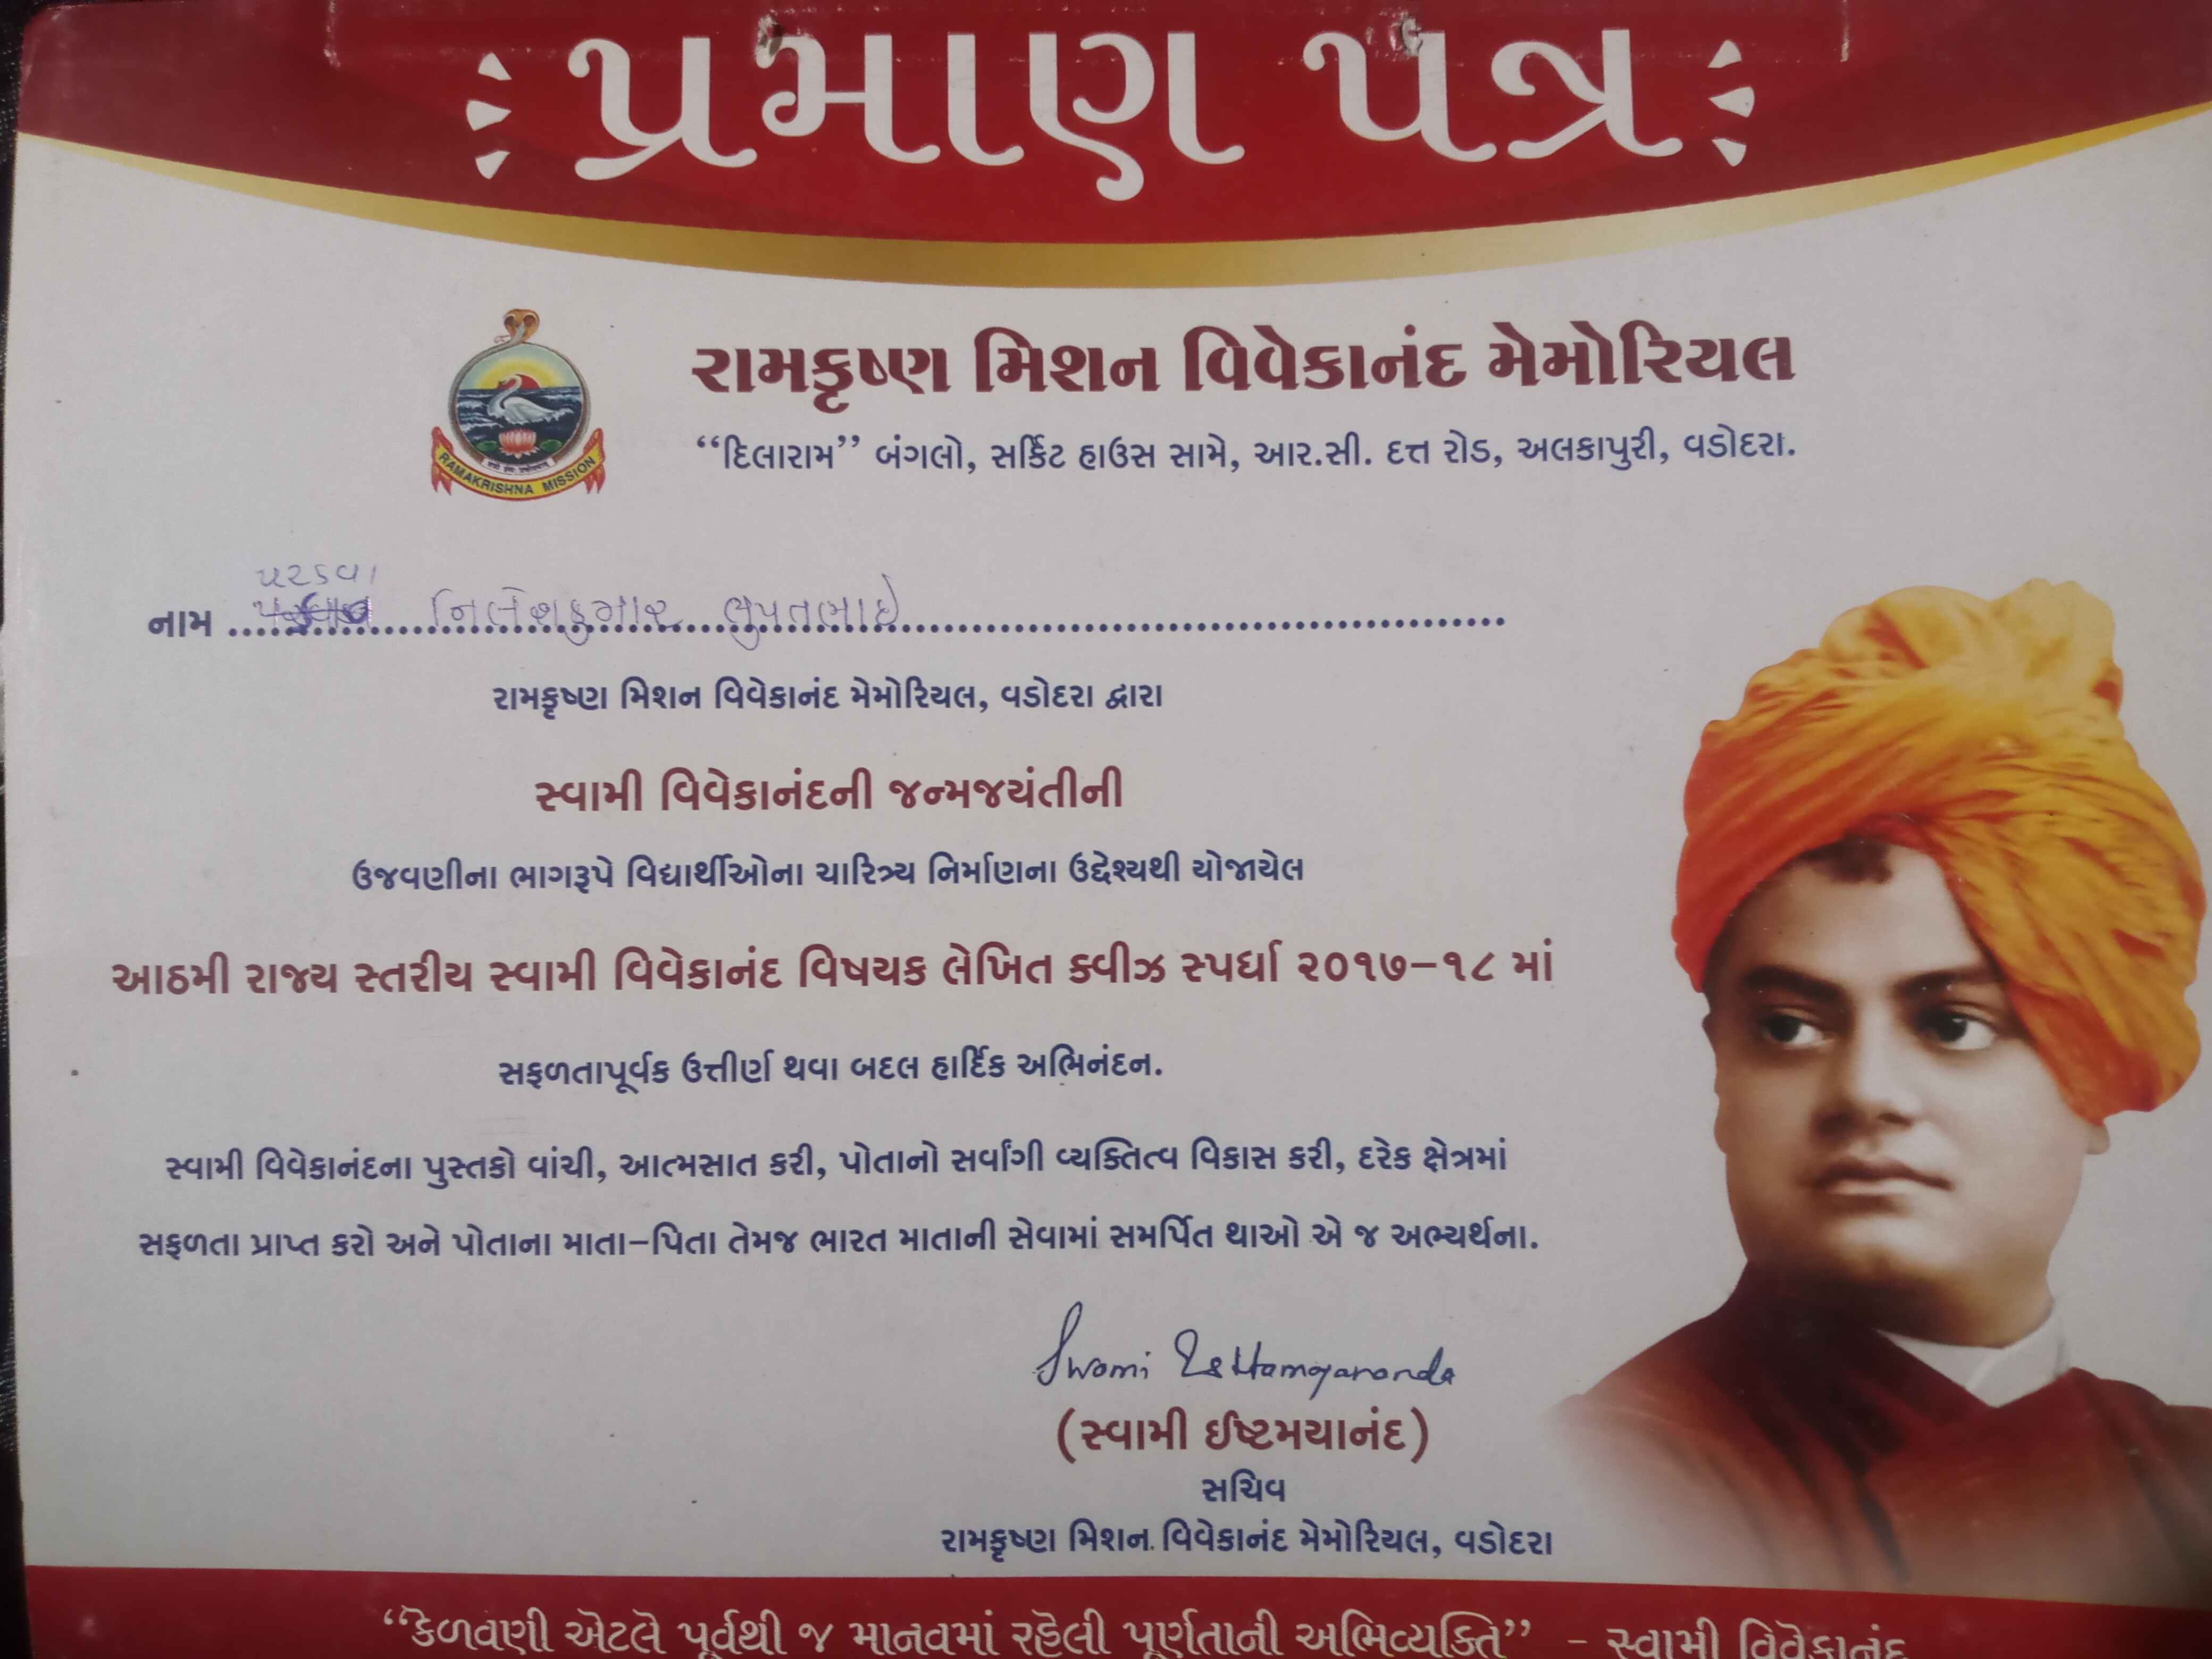 પ્રમાણ પત્ર
રામકૃષ્ણ મિશન વિવેકાનંદ મેમોરિયલ
“દિલારામ” બંગલો, સર્કિટ હાઉસ સામે, આર.સી. દત્ત રોડ, અલકાપુરી, વડોદરા.
RAMAKRISHNA MISSION
પરડવા
નામ ........ નિલેશકુમાર ભુપતભાઈ ........
રામકૃષ્ણ મિશન વિવેકાનંદ મેમોરિયલ, વડોદરા દ્વારા
સ્વામી વિવેકાનંદની જન્મજયંતીની
ઉજવણીના ભાગરૂપે વિદ્યાર્થીઓના ચારિત્ર્ય નિર્માણના ઉદ્દેશ્યથી યોજાયેલ
આઠમી રાજ્ય સ્તરીય સ્વામી વિવેકાનંદ વિષયક લેખિત ક્વીઝ સ્પર્ધા ૨૦૧૭–૧૮ માં
સફળતાપૂર્વક ઉત્તીર્ણ થવા બદલ હાર્દિક અભિનંદન.
સ્વામી વિવેકાનંદના પુસ્તકો વાંચી, આત્મસાત કરી, પોતાનો સર્વાંગી વ્યક્તિત્વ વિકાસ કરી, દરેક ક્ષેત્રમાં
સફળતા પ્રાપ્ત કરો અને પોતાના માતા–પિતા તેમજ ભારત માતાની સેવામાં સમર્પિત થાઓ એ જ અભ્યર્થના.
Swami Ishtamayananda
(સ્વામી ઈષ્ટમયાનંદ)
સચિવ
રામકૃષ્ણ મિશન વિવેકાનંદ મેમોરિયલ, વડોદરા
“કેળવણી એટલે પૂર્વથી જ માનવમાં રહેલી પૂર્ણતાની અભિવ્યક્તિ” – સ્વામી વિવેકાનંદ